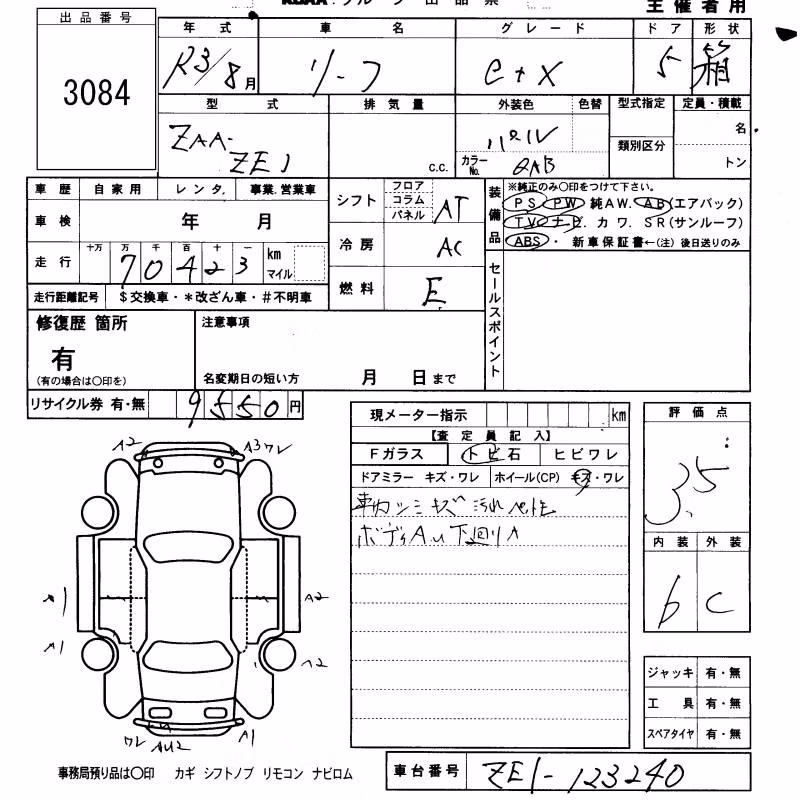 出品番号
3084
主催者用
年式 車名 グレード ドア 形状
R3/8月 リーフ e+X 5 箱
型式 排気量 外装色 色替 型式指定 定員・積載
ZAA-
ZE1
c.c.
パール
カラーNo. QAB
類別区分
名
トン
車歴 自家用 レンタ. 事業.営業車
車検 年 月
走行 十万 万 千 百 十 一
70423 km
マイル
走行距離記号 $交換車・*改ざん車・#不明車
シフト フロア コラム パネル AT
冷房 AC
燃料 E
装備品
※純正のみ〇印をつけて下さい。
PS PW 純AW. AB(エアバック)
TV ナビ. カワ. SR(サンルーフ)
ABS・新車保証書←(注)後日送りのみ
セールスポイント
修復歴 箇所
有
(有の場合は〇印を)
注意事項
名変期日の短い方 月 日まで
リサイクル券 有・無 9550円
現メーター指示 km
【査定員記入】
Fガラス トビ石 ヒビワレ
ドアミラー キズ・ワレ ホイール(CP) キズ・ワレ
車内シミキズ汚れ
ボディAU下廻りA
評価点
3.5
内装 外装
b C
ジャッキ 有・無
工具 有・無
スペアタイヤ 有・無
A2 A3ワレ
A1
A2
A1
A2
ワレ AU2 A1
事務局預り品は〇印 カギ シフトノブ リモコン ナビロム
車台番号 ZE1-123240